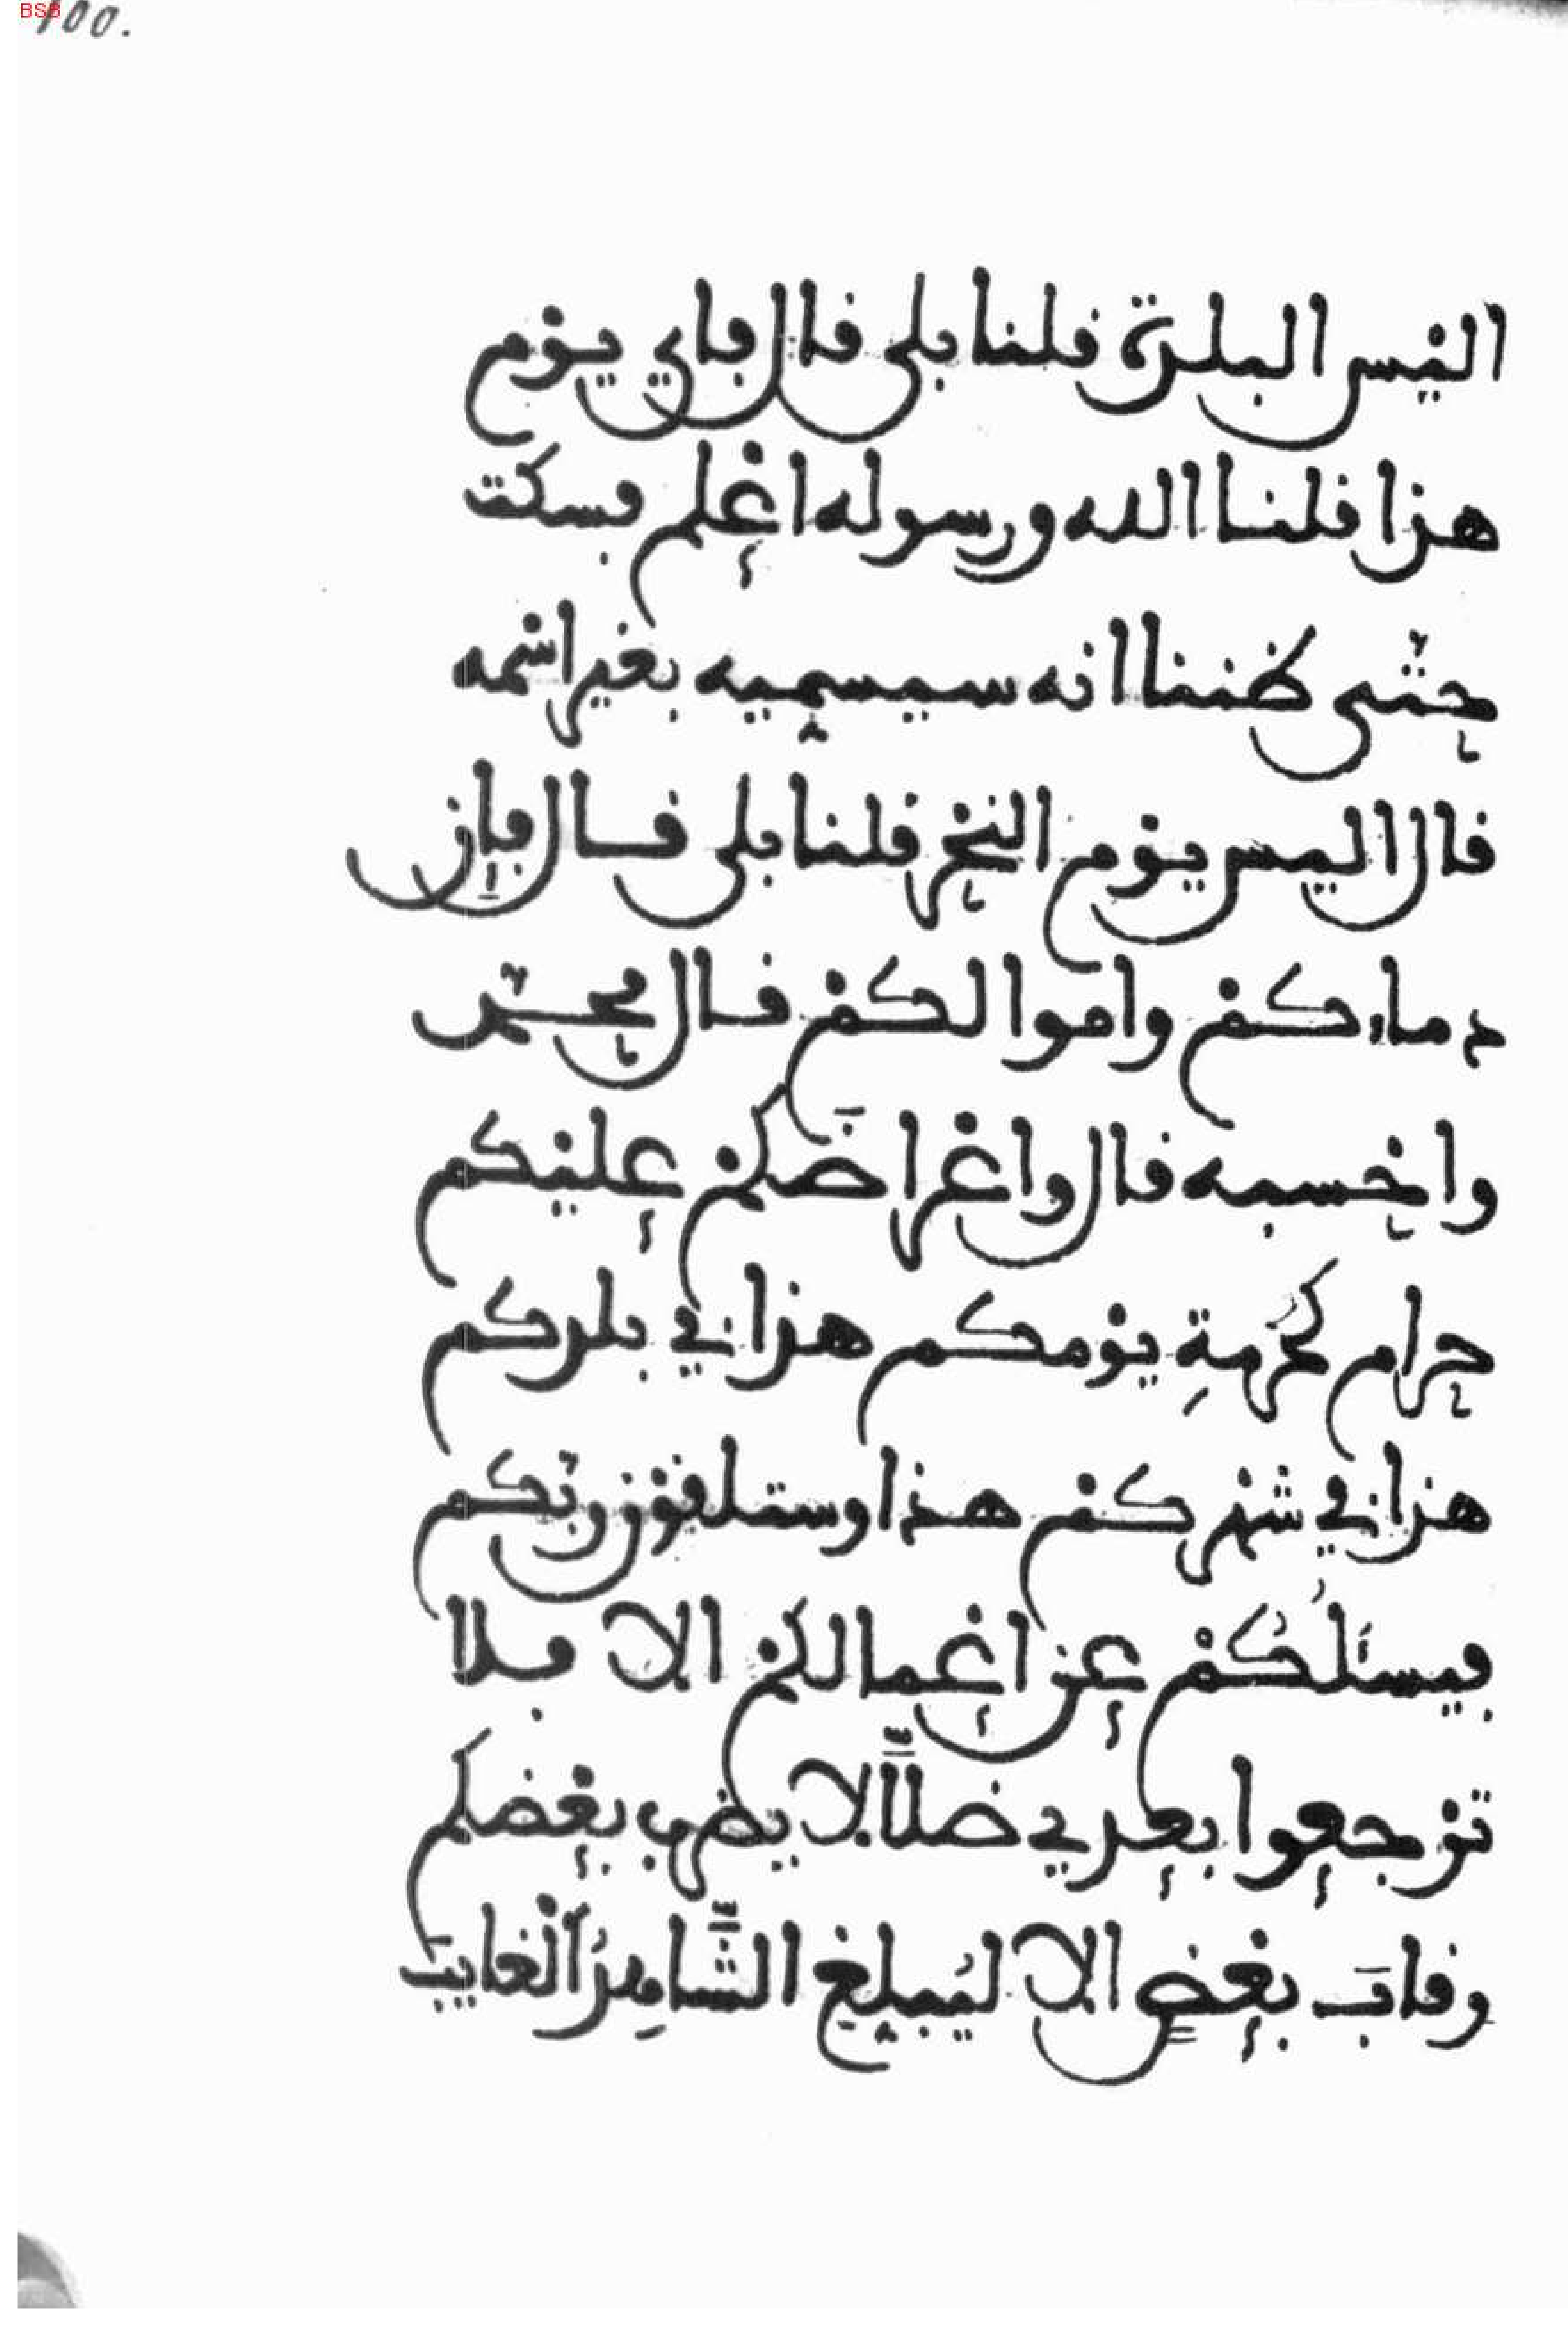 BSB
100.
اليْس البلدة قلنا بلى قال فاي يوْم
هذا قلنا الله ورسوله اعْلم فسكت
حتّى ظننا انه سيسميه بغير اسْمه
قال اليس يوْم النحْر قلنا بلى قال فإن
دماءكمْ وامْوالكمْ قال محمّد
واحْسبه قال واعْراضَكمْ عليْكم
حرام كحُرْمةِ يوْمكم هذا في بلدكم
هذا في شهْركمْ هذا وستلقوْن ربّكم
فيسئلُكُمْ عن اعْمالكمْ الا فلا
ترْجعوا بعدي ضلّالا يضْرب بعْضكم
رقابَ بعْضٍ الا ليُبلغ الشَّاهِدُ الْغايبَ